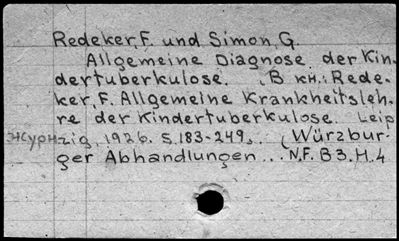 Redeker, F. und Simon, G.
Allgemeine Diagnose der Kin-
dertuberkulose. В кн.: Rede-
ker, F. Allgemeine Krankheitsleh-
re der Kindertuberkulose. Leip
журн zig, 1926. S. 183-249. (Würzbur-
ger Abhandlungen... N.F. B 3. H. 4